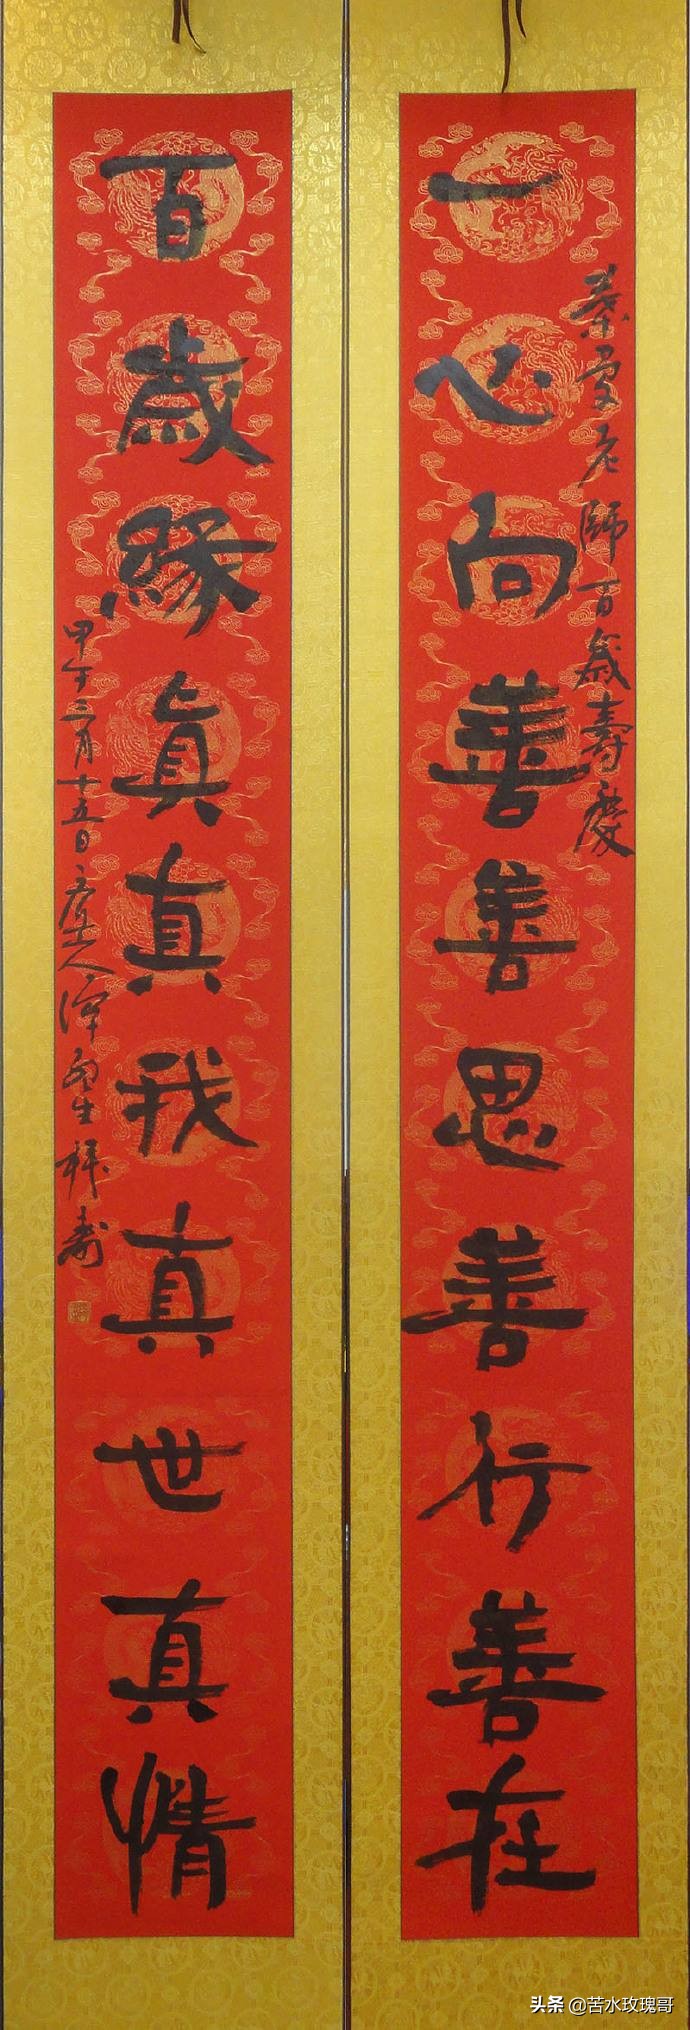 葉曼老師百歲壽慶
一心向善善思善行善在
百歲緣眞真我真世真情
甲午三月十五日 人 生拜壽
头条 @苦水玫瑰哥